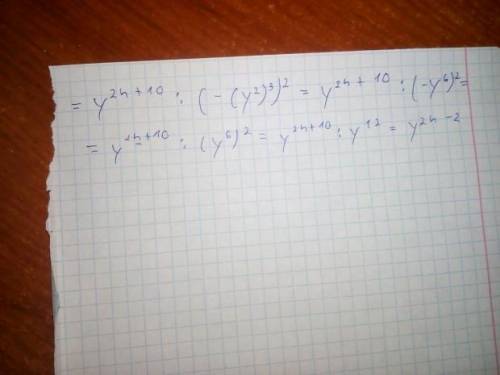 = y^{2n+10} : (-(y^2)^3)^2 = y^{2n+10} : (-y^6)^2 =
= y^{2n+10} : (y^6)^2 = y^{2n+10} : y^{12} = y^{2n-2}